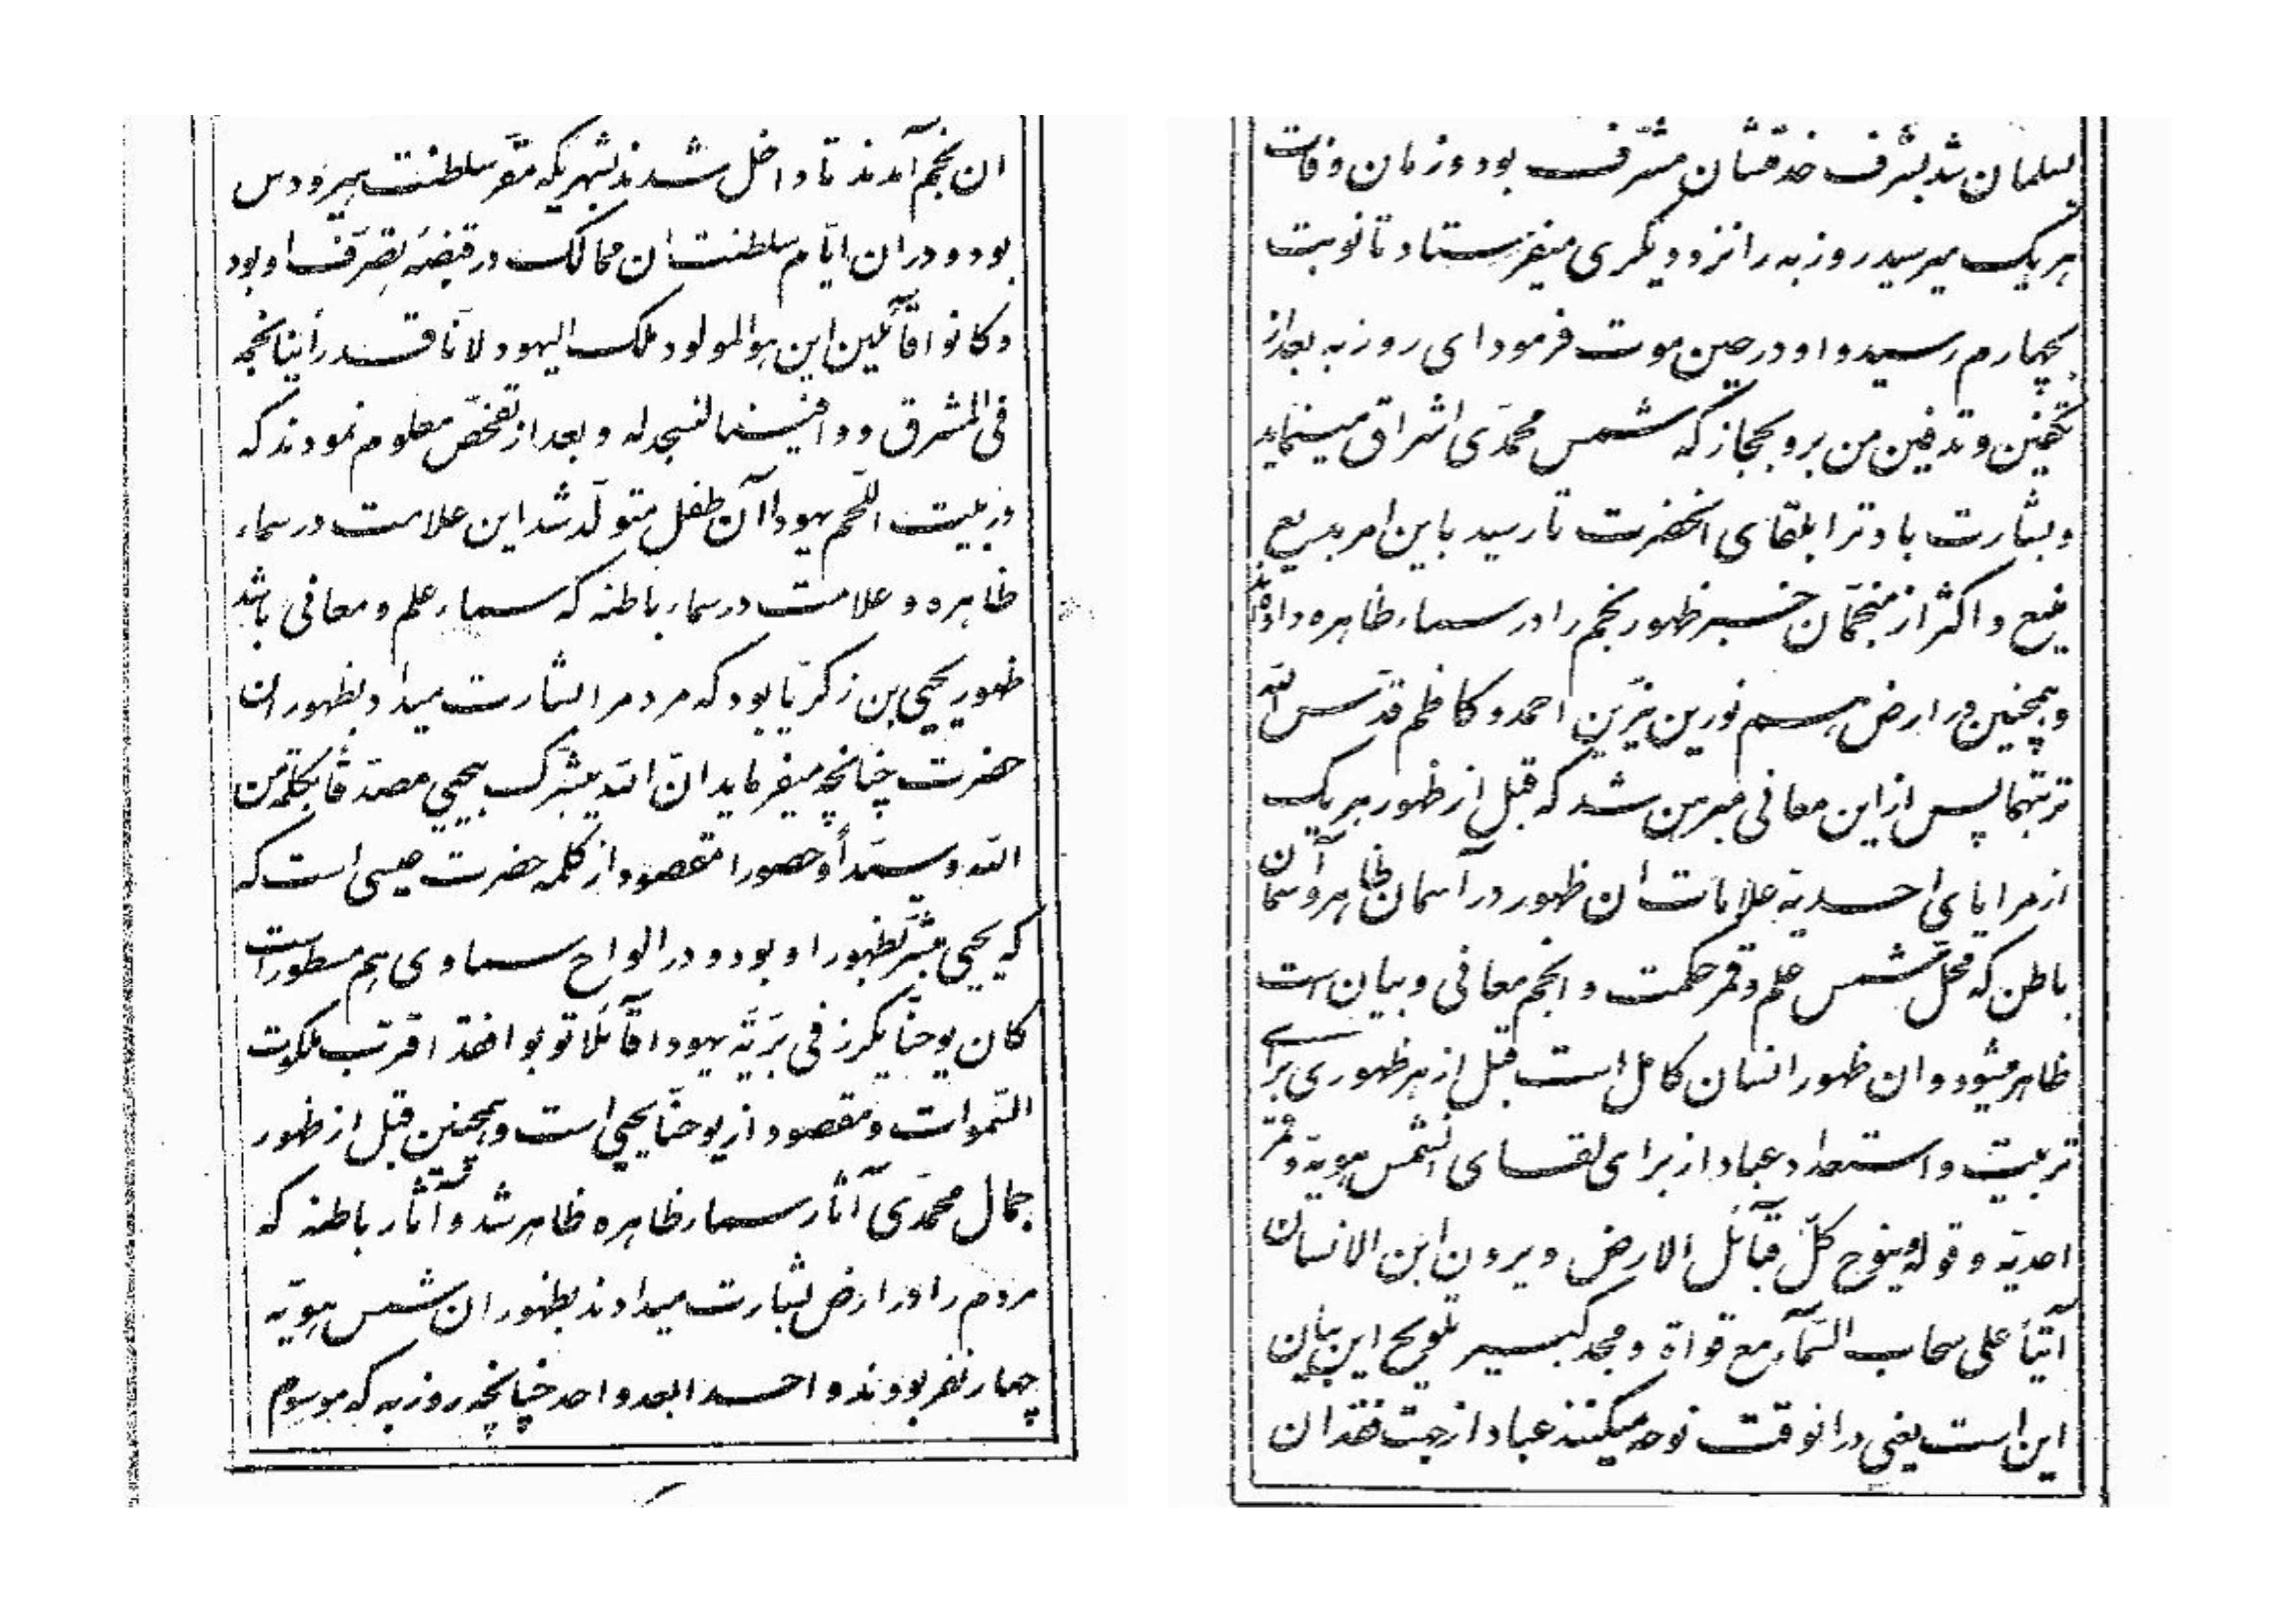 ان نجم آمدند تا داخل شدند بشهریکه مقرّ سلطنت هیرودس
بود و دران ایّام سلطنت ان ممالک در قبضهٔ تصرّف او بود
و کانوا قآئلین این هو المولود ملک الیهود لانّا قد رأینا نجمه
فی المشرق ووافینا لنسجد له و بعد از تفحّص معلوم نمودند که
در بیت اللّحم یهودا آن طفل متولّد شد این علامت در سماء
ظاهره و علامت در سماء باطنه که سماء علم و معانی باشد
ظهور یحیی بن زکریّا بود که مردم را بشارت میداد بظهور ان
حضرت چنانچه میفرماید انّ اللّه یبشّرک بیحیی مصدّقاً بکلمة من
اللّه و سیّداً و حصورا مقصود از کلمه حضرت عیسی است که
که یحیی مبشّر بظهور او بود و در الواح سماوی هم مسطور است
کان یوحنّا یکرز فی بریّة یهودا قآئلا توبوا فقد اقترب ملکوت
السّموات و مقصود از یوحنّا یحیی است و همچنین قبل از ظهور
جمال محمّدی آثار سماء ظاهره ظاهر شد و آثار باطنه که
مردم را در ارض بشارت میدادند بظهور ان شمس هویّه
چهار نفر بودند واحدا بعد واحد چنانچه روزبه که موسوم
بسلمان شد بشرف خدمتشان مشرّف بود و زمان وفات
هر یک میرسید روزبه را نزد دیگری میفرستاد تا نوبت
بچهارم رسید و او در حین موت فرمود ای روزبه بعد از
تکفین و تدفین من برو بحجاز که شمس محمّدی اشراق مینماید
و بشارت باد ترا بلقای انحضرت تا رسید باین امر بدیع
منیع و اکثر از منجّمان خبر ظهور نجم را در سماء ظاهره داده‌اند
و همچنین در ارض هم نورین نیّرین احمد و کاظم قدّس اللّه
تربتهما پس از این معانی مبرهن شد که قبل از ظهور هر یک
از مرایای احدیّه علامات ان ظهور در آسمان ظاهر و آسمان
باطن که محلّ شمس علم و قمر حکمت و انجم معانی و بیان است
ظاهر میشود و ان ظهور انسان کامل است قبل از هر ظهوری برای
تربیت و استعداد عباد از برای لقای انشمس هویّه و قمر
احدیّه و قوله وینوح کلّ قبآئل الارض و یرون ابن الانسان
آتیاً علی سحاب السّمآء مع قواة و مجد کبیر تلویح این بیان
این است یعنی در انوقت نوحه میکنند عباد از جهت فقدان